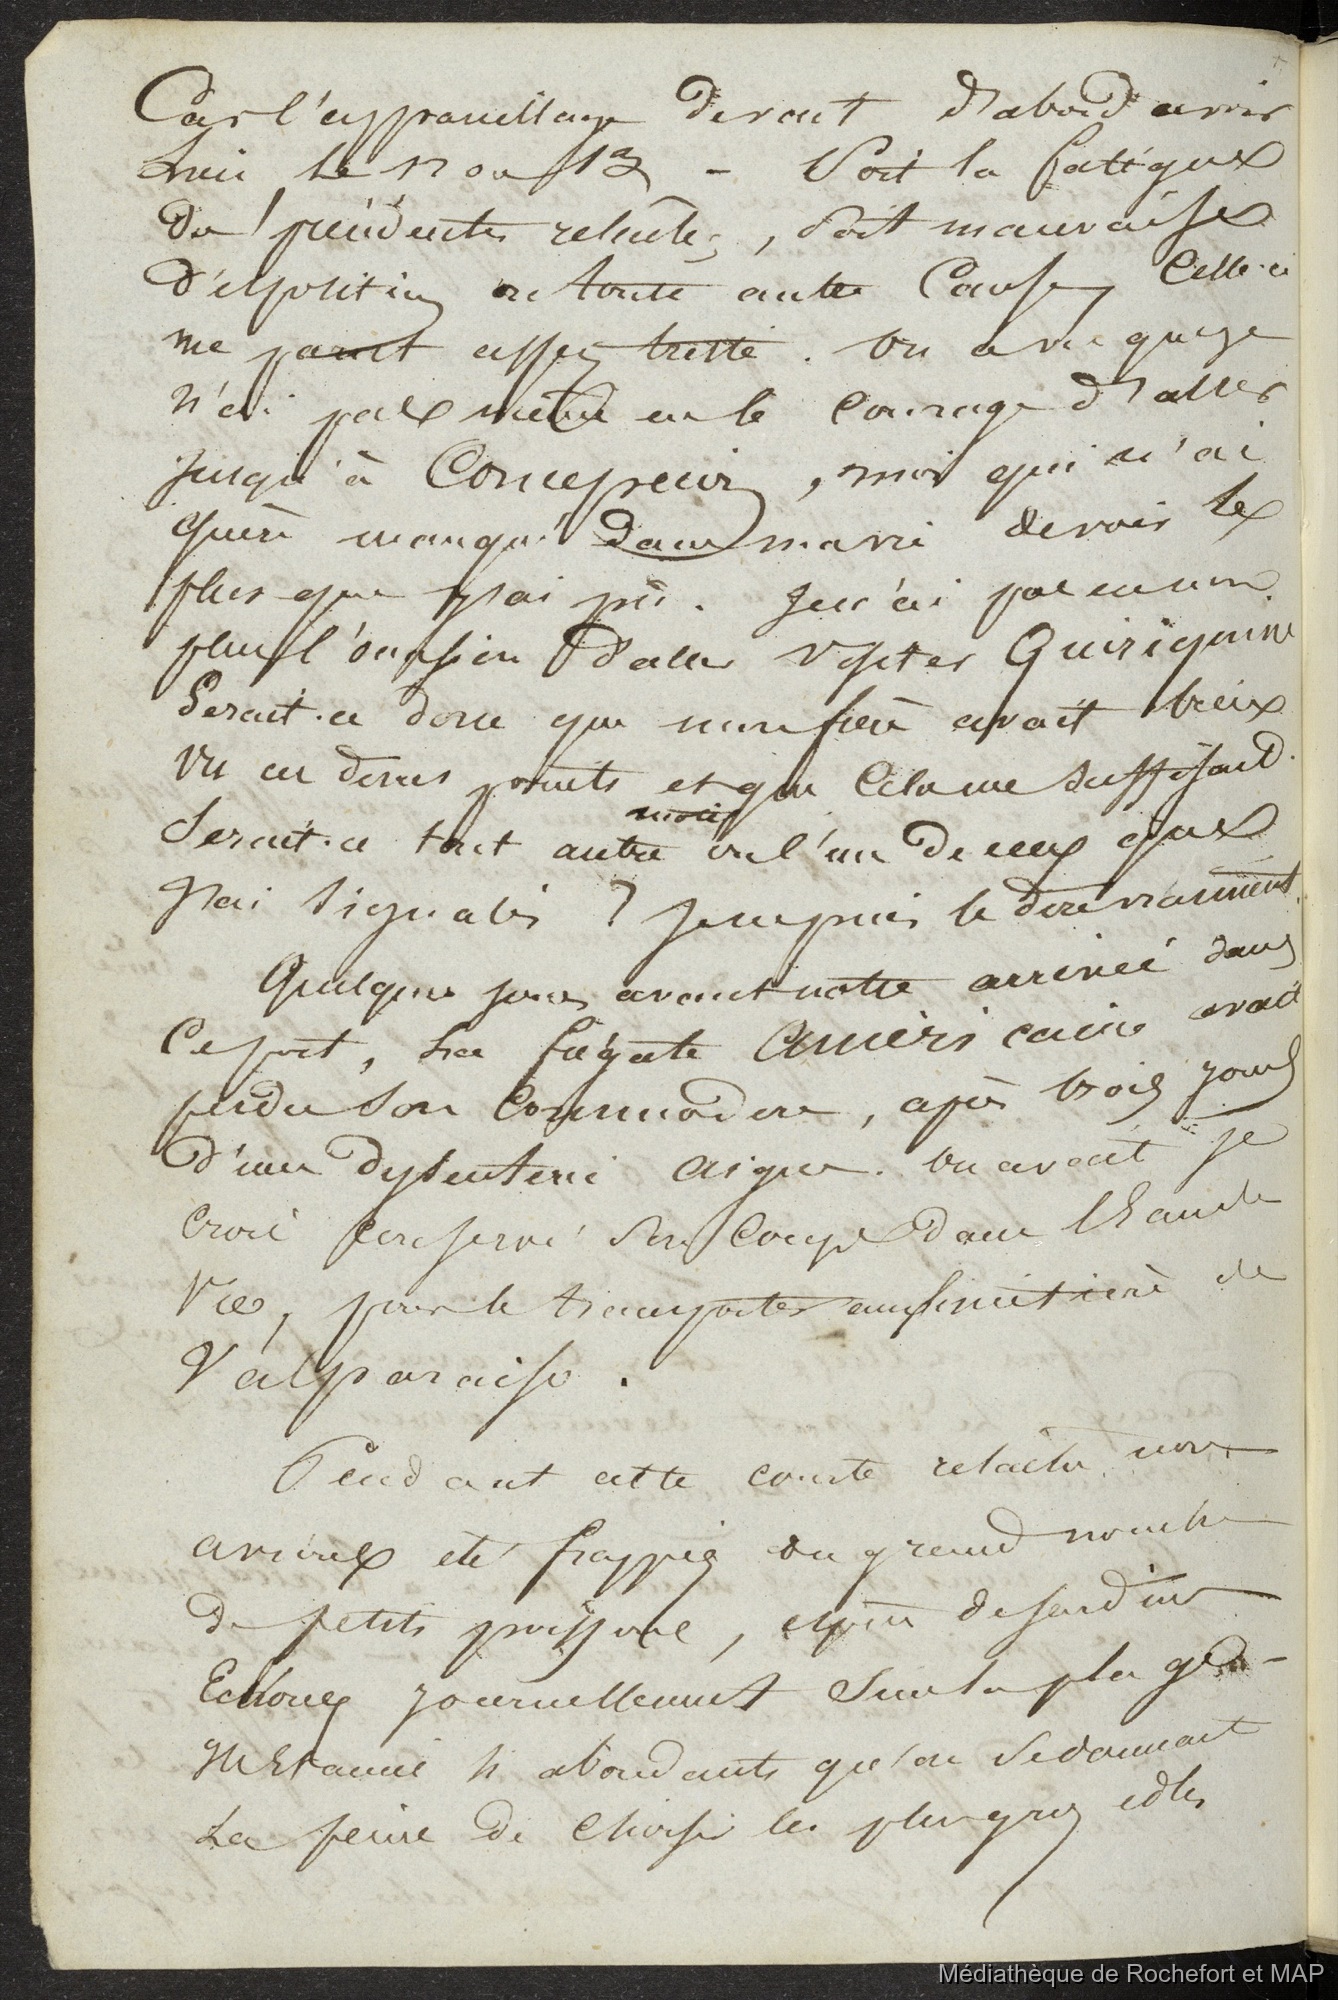 Car l'appareillage devait d'abord avoir
lieu le 12 ou 13 - Soit la fatigue
du précédentes relâches, soit mauvaise
disposition ou toute autre Cause, Celle-ci
me parait assez triste. On a vu que je
n'ai pas même eu le courage d'aller
jusqu'à Concepcion, moi qui n'ai
guère manqué dans ma vie de voir le
plus que j'ai pû. Je n'ai pas eu non
plus l'occasion d'aller visiter Quiriquine
Serait-ce donc que mon frère avait vieux
Vu en divers points et que Cela me suffisait.
Serait-ce tout autre motif ou l'un de ceux que
J'ai signalés ? Je ne puis le dire vraiment.
Quelques jours avant notre arrivée dans
Ce port, La frégate Américaine avait
perdu son Commodore, après trois jours
d'une dysenterie aigue. On avait je
crois conservé son Corps dans l'Eau de
Vie, pour le transporter au cimetière de
Valparaiso.
Pendant cette courte relâche nous
avions été frappés du grand nombre
de petits poissons, espèce de sardines
Echoués journellement sur la plage -
Ils étaient si abondants qu'on se donnait
La peine de choisir les plus gros et les
Médiathèque de Rochefort et MAP